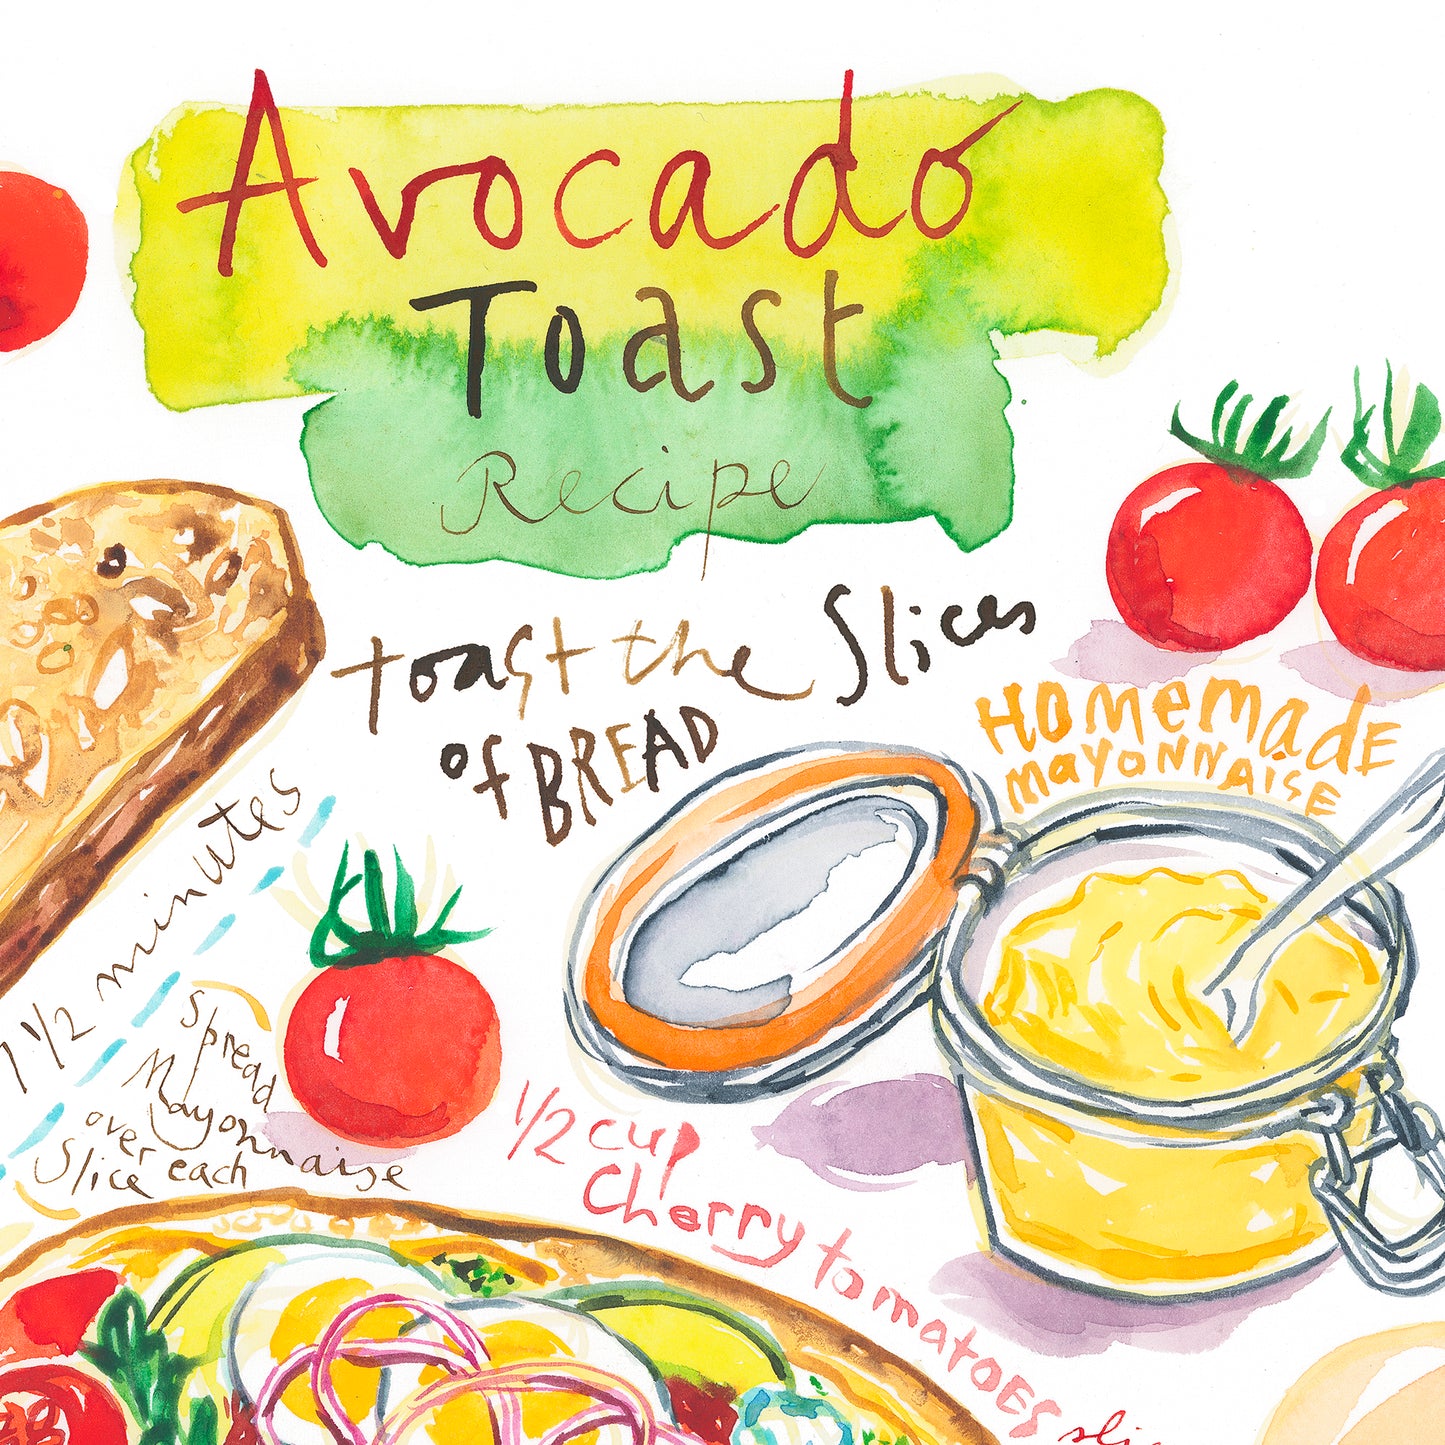 Avocado
Toast
Recipe
toast the Slices
of BREAD
Homemade
mayonnaise
1/2 minutes
Spread
Mayonnaise
over each
Slice
1/2 cup
Cherry tomatoes